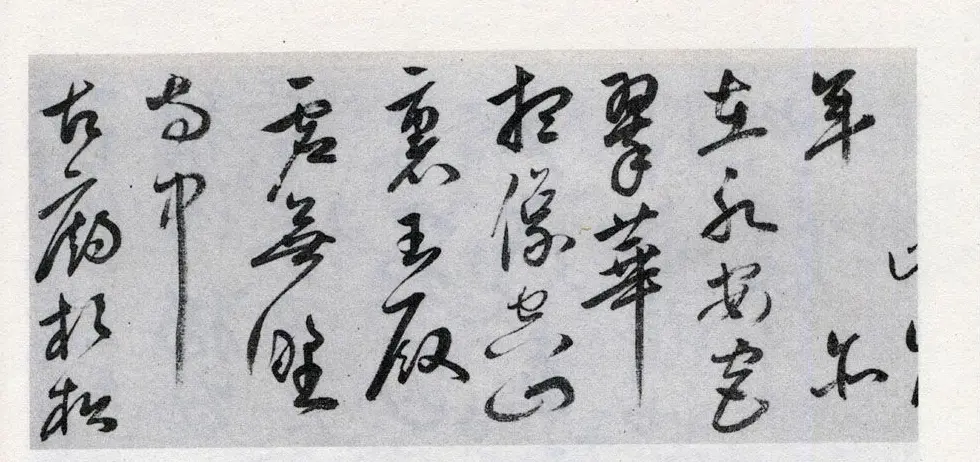 年亦
在永安宫
翠華
想像空山
裏玉殿
虚無野
寺中
古廟杉松